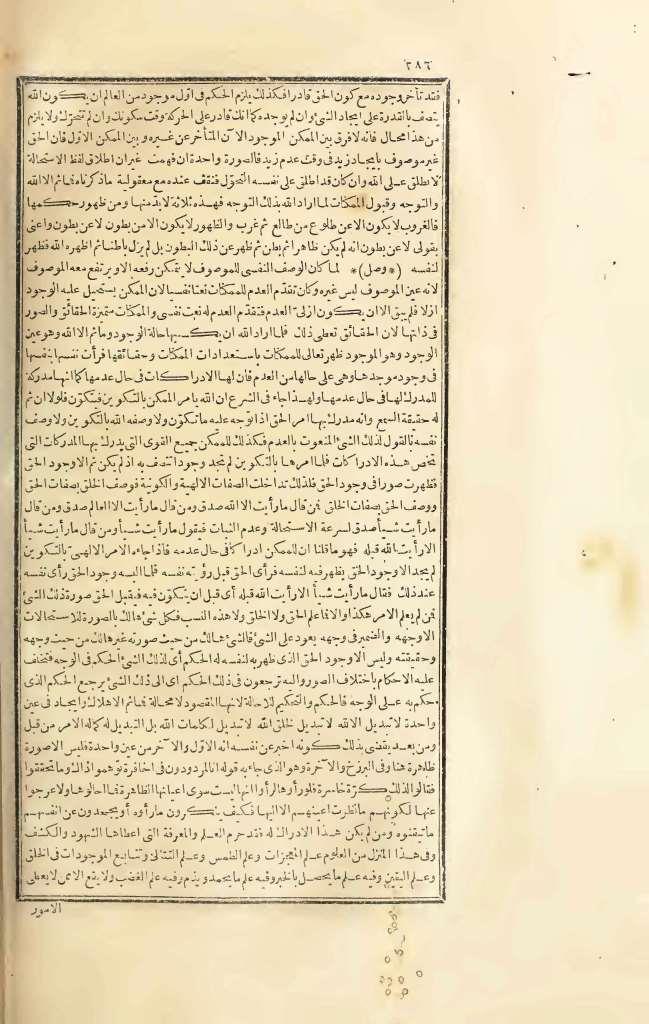 ٢٨٦
فقد تأخر وجوده مع كون الحق قادرا فكذلك يلزم الحكم فى أول موجود من العالم ان يكون الله
يتصف بالقدرة على ايجاد الشئ وان لم يوجده كما انك قادر على الحركة وقت سكونك وان لم تتحرك ولا يلزم
من هذا محال فانه لا فرق بين الممكن الموجود الآن المتأخر عن غيره وبين الممكن الاول فان الحق
غير موصوف بايجاد زيد فى وقت عدم زيد فالصورة واحدة ان فهمت غير ان اطلاق لفظ الاستحالة
لا يطلق على الله وان كان قد اطلق على نفسه التحول فنقف عنده مع معقولية ما ذكرناه فما ثم الا الله
والتوجه وقبول الممكنات لما اراد الله بذلك التوجه فهذه ثلاثة لا بد منها ومن ظهور حكمها
فالغروب لا يكون الا عن طلوع من طالع ثم غرب والظهور لا يكون الا من بطون لا عن بطون واعنى
بقولى لا عن بطون انه لم يكن ظاهرا ثم بطن ثم ظهر عن ذلك البطون بل لم يزل باطنا ثم اظهره الله فظهر
لنفسه *(وصل)* لما كان الوصف النفسى للموصوف لا يتمكن رفعه الا ويرتفع معه الموصوف
لانه عين الموصوف ليس غيره وكان تقدم العدم للممكنات نعتا نفسيا لان الممكن يستحيل عليه الوجود
ازلا فلم يبق الا ان يكون ازلى العدم فتقدم العدم له نعت نفسى والممكنات متميزة الحقائق والصور
فى ذاتها لان الحقائق تعطى ذلك فلما اراد الله ان يكسبها حالة الوجود وما ثم الا الله وهو عين
الوجود وهو الموجود ظهر تعالى للممكنات باستعدادات الممكنات وحقائقها فرأت نفسها بنفسها
فى وجود موجدها وهى على حالها من العدم فان لها الادراكات فى حال عدمها كما انها مدركة
للمدرك لها فى حال عدمها ولهذا جاء فى الشرع ان الله يامر الممكن بالتكوين فيتكون فلولا ان ثم
له حقيقة السمع وانه مدرك بها امر الحق اذا توجه عليه ما تكون ولا وصفه الله بالتكوين ولا وصف
نفسه بالقول لذلك الشئ المنعوت بالعدم فكذلك للممكن جميع القوى التى يدرك بها المدركات التى
تخص هذه الادراكات فلما امرها بالتكوين لم تجد وجودا تتصف به اذ لم يكن ثم الا وجود الحق
فظهرت صورا فى وجود الحق فلذلك تداخلت الصفات الالهية والكونية فوصف الخلق بصفات الحق
ووصف الحق بصفات الخلق فمن قال ما رأيت الا الله صدق ومن قال ما رأيت الا العالم صدق ومن قال
ما رأيت شيأ صدق لسرعة الاستحالة وعدم الثبات فيقول ما رأيت شيأ ومن قال ما رأيت شيأ
الا رأيت الله قبله فهو ما قلنا ان للممكن ادراكا فى حال عدمه فاذا جاءه الامر الالهى بالتكوين
لم يجد الا وجود الحق يظهر فيه لنفسه فرأى الحق قبل رؤيته نفسه فلما البسه وجود الحق رأى نفسه
عند ذلك فقال ما رأيت شيأ الا رأيت الله قبله أى قبل ان يتكون فيه فيقبل الحق صورة ذلك الشئ
فمن لم يعلم الامر هكذا والا فما علم الحق ولا الخلق ولا هذه النسب فكل شئ هالك بالصورة للاستحالات
الا وجهه والضمير فى وجهه يعود على الشئ فالشئ هالك من حيث صورته غير هالك من حيث وجهه
وحقيقته وليس الا وجود الحق الذى ظهر به لنفسه له الحكم أى لذلك الشئ الحكم فى الوجه فتختلف
عليه الاحكام باختلاف الصور واليه ترجعون فى ذلك الحكم اى الى ذلك الشئ يرجع الحكم الذى
حكم به على الوجه فالحكم والتحكيم للاحالة لانها المقصود لا محالة فما ثم الا هلاك وايجاد فى عين
واحدة لا تبديل الا لله لا تبديل لخلق الله لا تبديل لكلمات الله بل التبديل له كما له الامر من قبل
ومن بعد يقضى بذلك كونه اخبر عن نفسه انه الاول والآخر من عين واحدة فليس الا صورة
ظاهرة هنا وفى البرزخ والآخرة وهو الذى جاء به قوله ائنا لمردودون فى الحافرة توهموا ذلك وما تحققوا
فقالوا لذلك كرة خاسرة فلو رأوها لرأوا انها ليست سوى اعيانها الظاهرة فما احالوها ولا عرجوا
عنها لكونهم ما نظرت اعينهم الا اليها فكيف ينكرون ما رأوه أو يجحدون عن انفسهم
ما تيقنوه ومن لم يكن هذا الادراك له فقد حرم العلم والمعرفة التى اعطاها الشهود والكشف
وفى هذا المنزل من العلوم علم المعجزات وعلم الطمس وعلم التتالى وتتابع الموجودات فى الخلق
وعلم اليقين وفيه علم ما يحصل بالخبر وفيه علم ما يحمد ويذم وفيه علم الغضب ولا يقع الا من لا يعطى
الامور